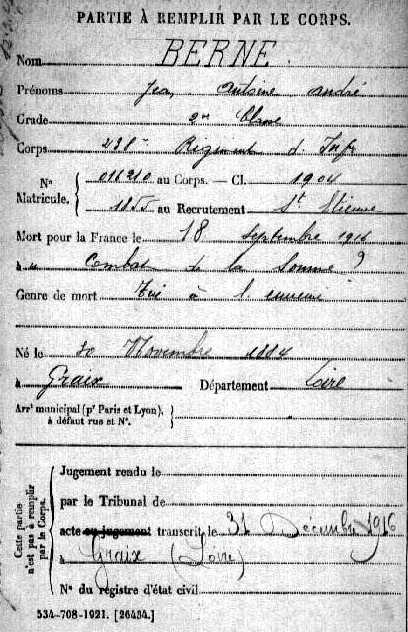 PARTIE À REMPLIR PAR LE CORPS.
Nom BERNE.
Prénoms Jean Antoine André
Grade 2me Classe
Corps 238e Régiment d'Infie
Nos Matricule. { 011210 au Corps. — Cl. 1904
1855 au Recrutement St Etienne
Mort pour la France le 18 septembre 1916
à " Combat de la Somme "
Genre de mort Tué à l'ennemi
Né le 30 Novembre 1884
à Graix Département Loire
Arrt municipal (pr Paris et Lyon), }
à défaut rue et N°.
Cette partie
n'est pas à remplir
par le Corps.
Jugement rendu le
par le Tribunal de
acte ou jugement transcrit le 31 Décembre 1916
à Graix (Loire)
N° du registre d'état civil
534-708-1921. [26434.]